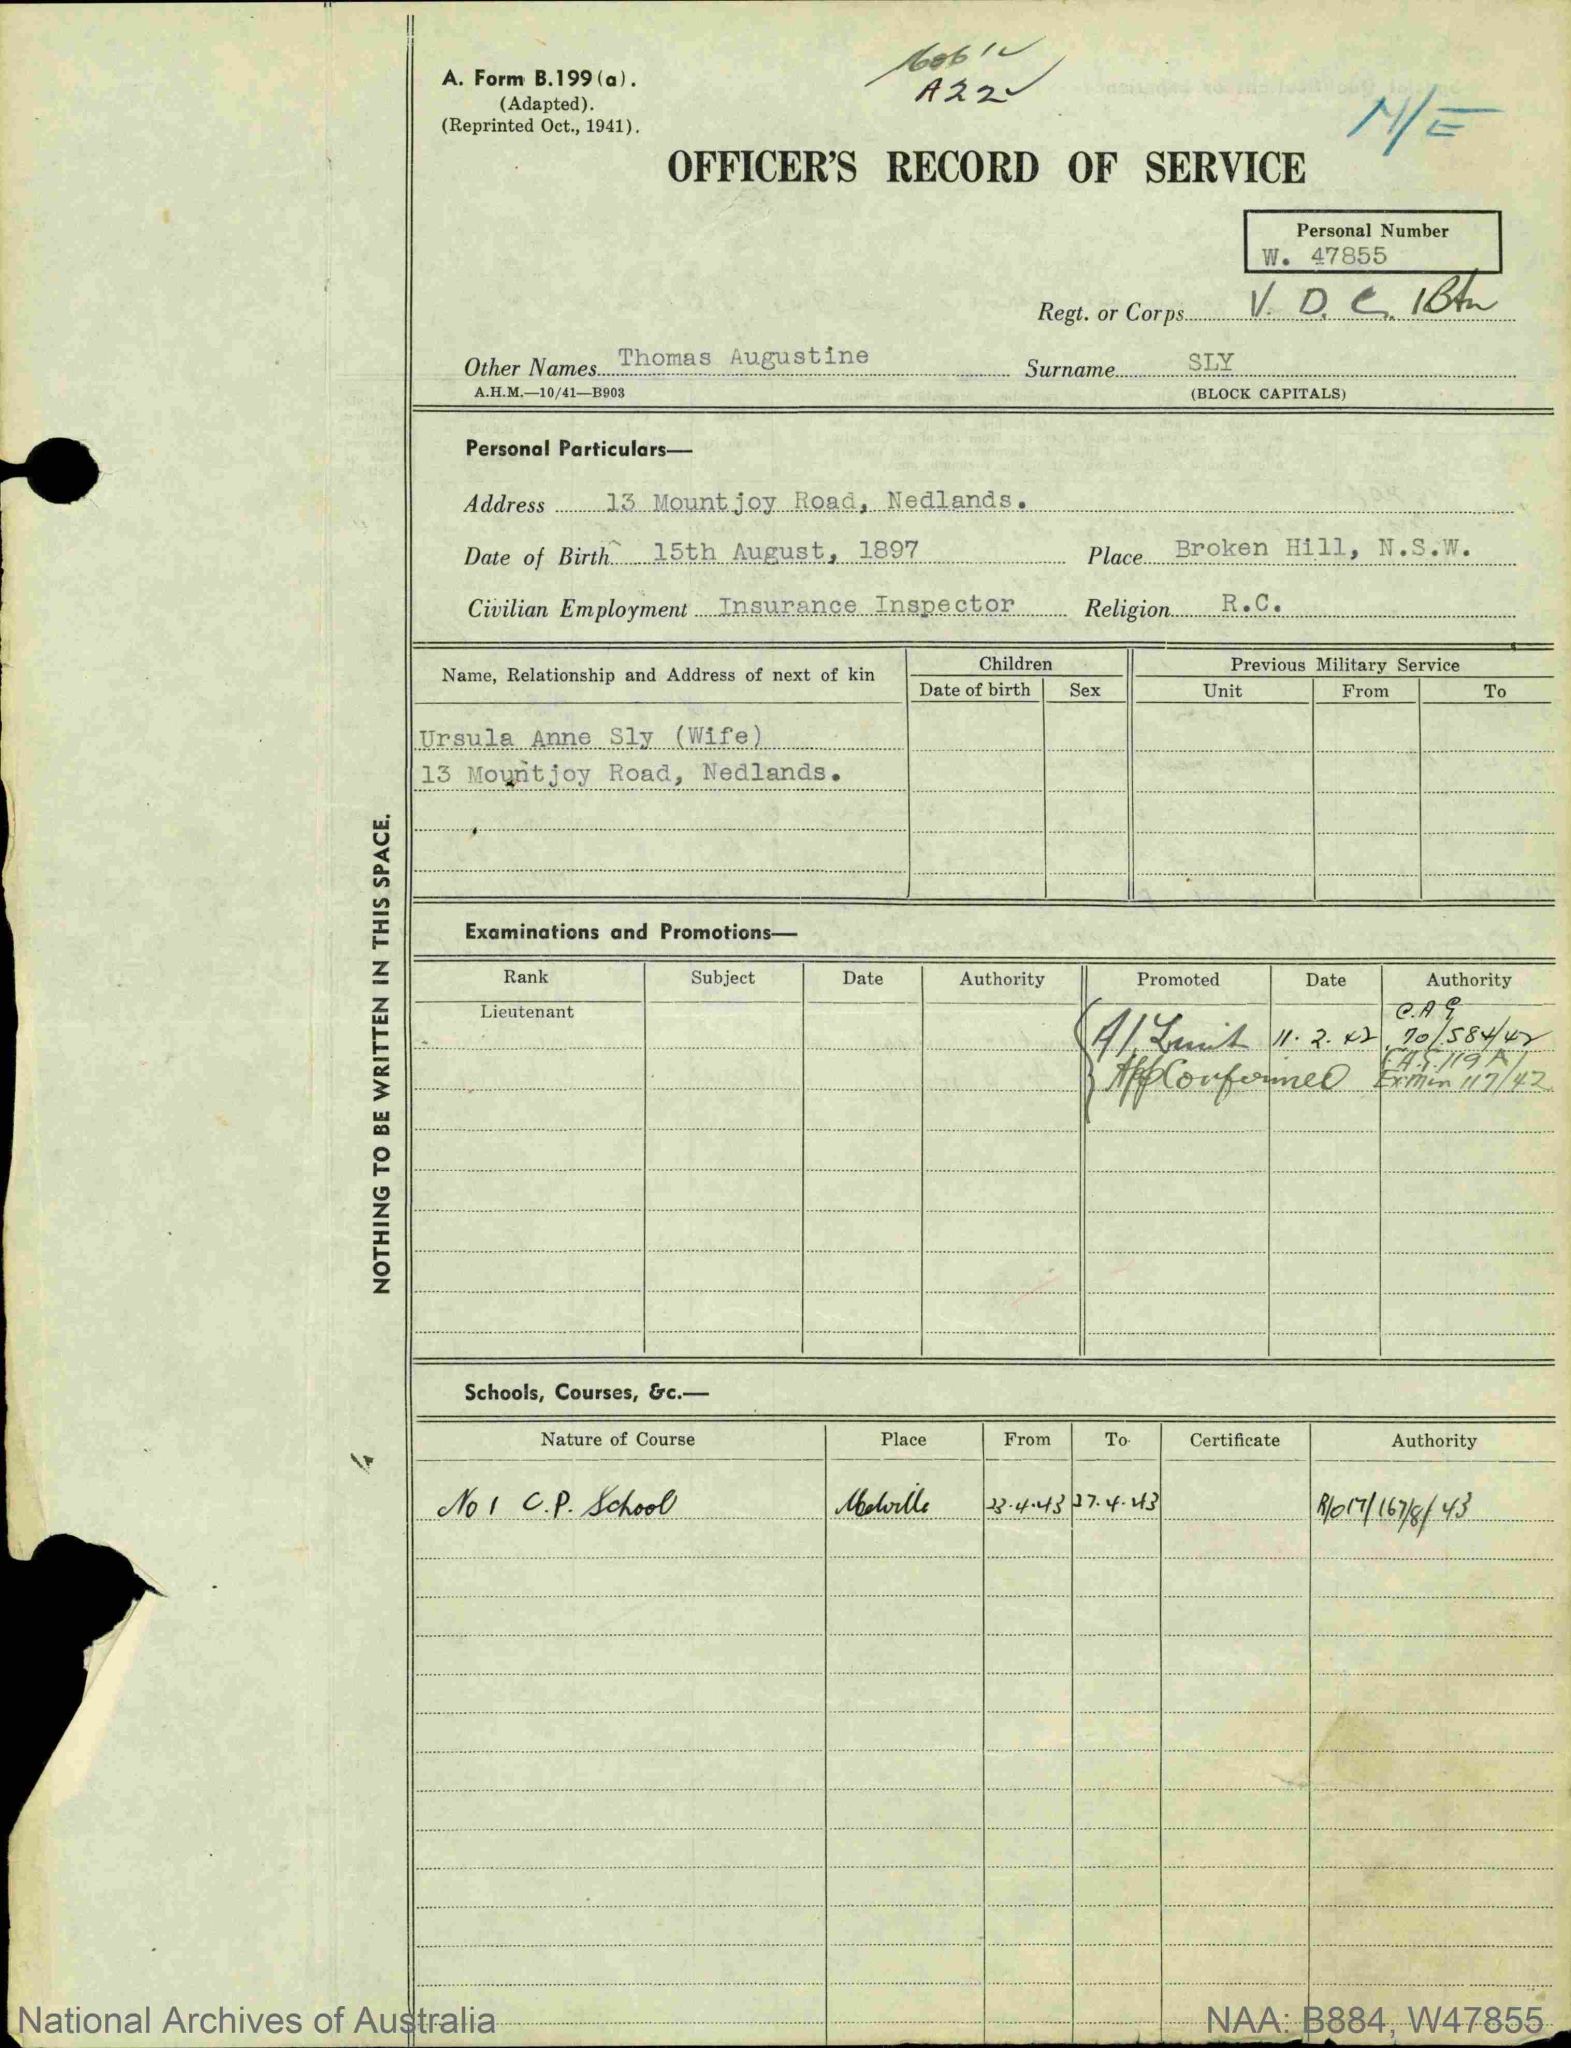 A. Form B.199 (a).
(Adapted).
(Reprinted Oct., 1941).
A22
M/E
OFFICER'S RECORD OF SERVICE
Personal Number
W. 47855
Regt. or Corps V. D. C. 1 Btn
Other Names Thomas Augustine Surname SLY
A.H.M.—10/41—B903 (BLOCK CAPITALS)
Personal Particulars—
Address 13 Mountjoy Road, Nedlands.
Date of Birth 15th August, 1897 Place Broken Hill, N.S.W.
Civilian Employment Insurance Inspector Religion R.C.
Name, Relationship and Address of next of kin Children Previous Military Service
Date of birth Sex Unit From To
Ursula Anne Sly (Wife)
13 Mountjoy Road, Nedlands.
NOTHING TO BE WRITTEN IN THIS SPACE.
Examinations and Promotions—
Rank Subject Date Authority Promoted Date Authority
Lieutenant
C.A.G
A/ Lieut 11.2.42 70/584/42
App Confirmed Ex Min 117/42
Schools, Courses, &c.—
Nature of Course Place From To Certificate Authority
No 1 C.P. School Melville 23.4.43 27.4.43 R/017/167/8/43
National Archives of Australia NAA: B884, W47855